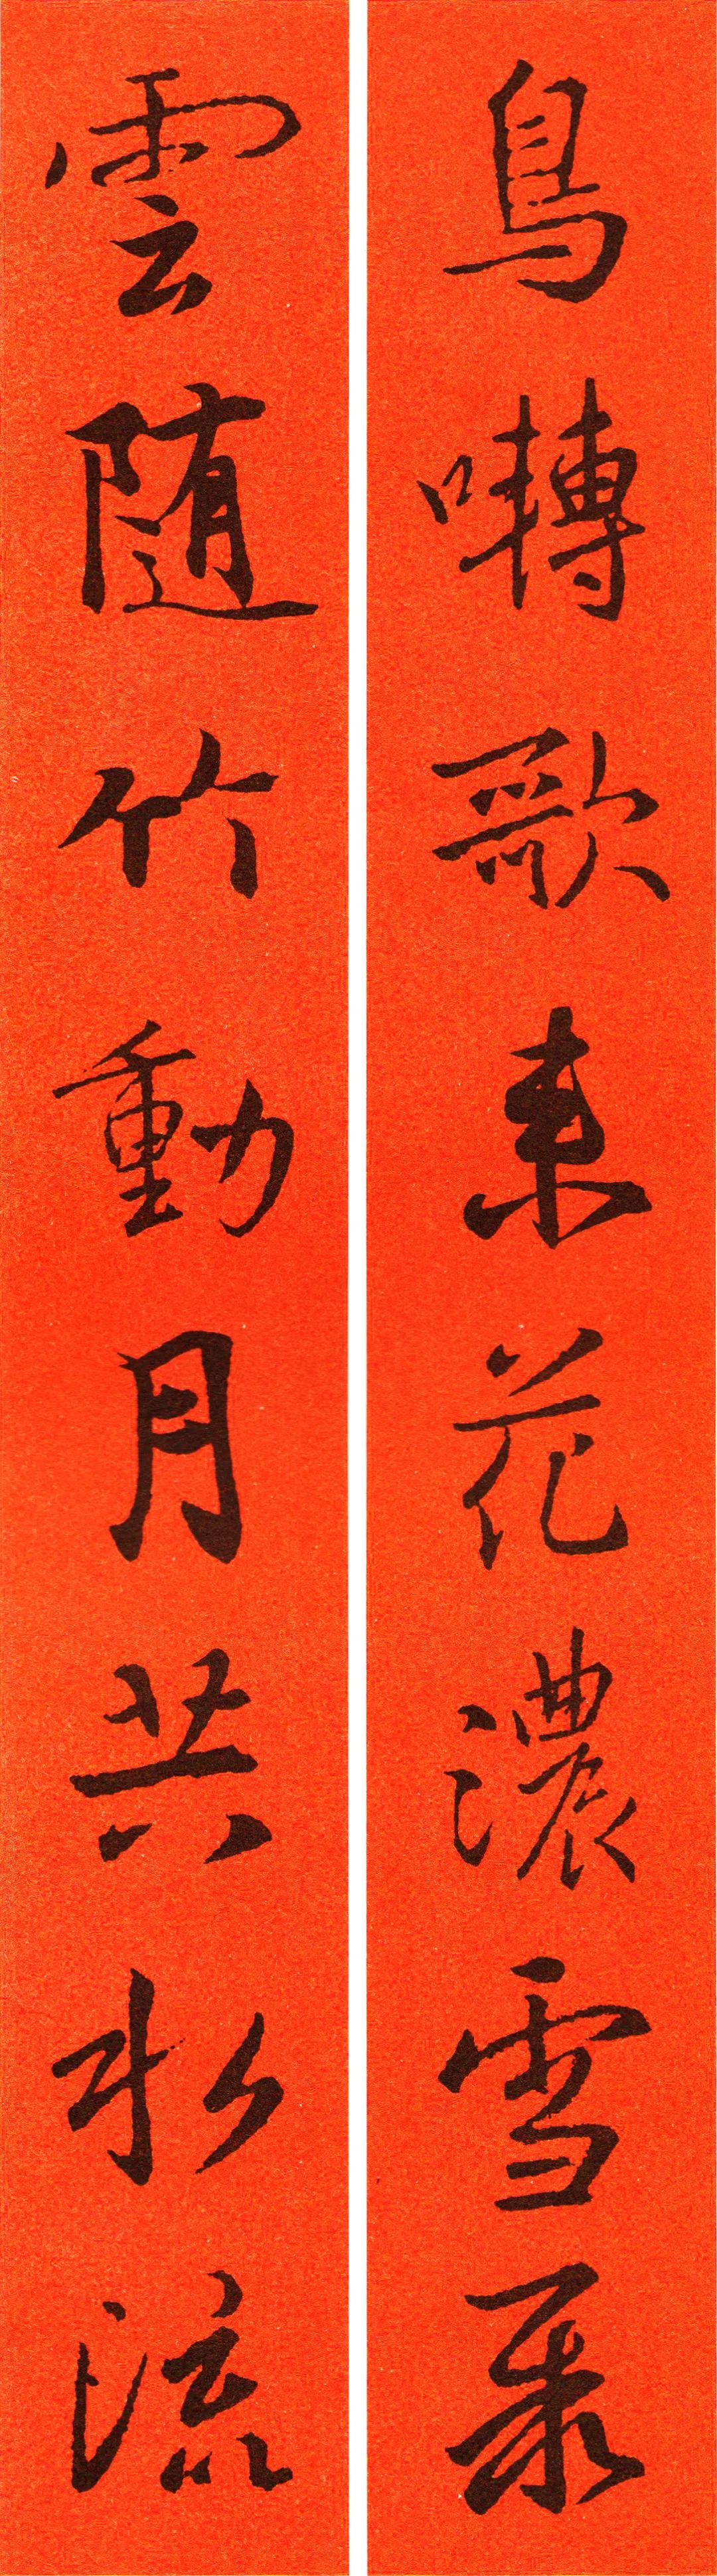 鳥囀歌來花濃雪聚
雲随竹動月共水流